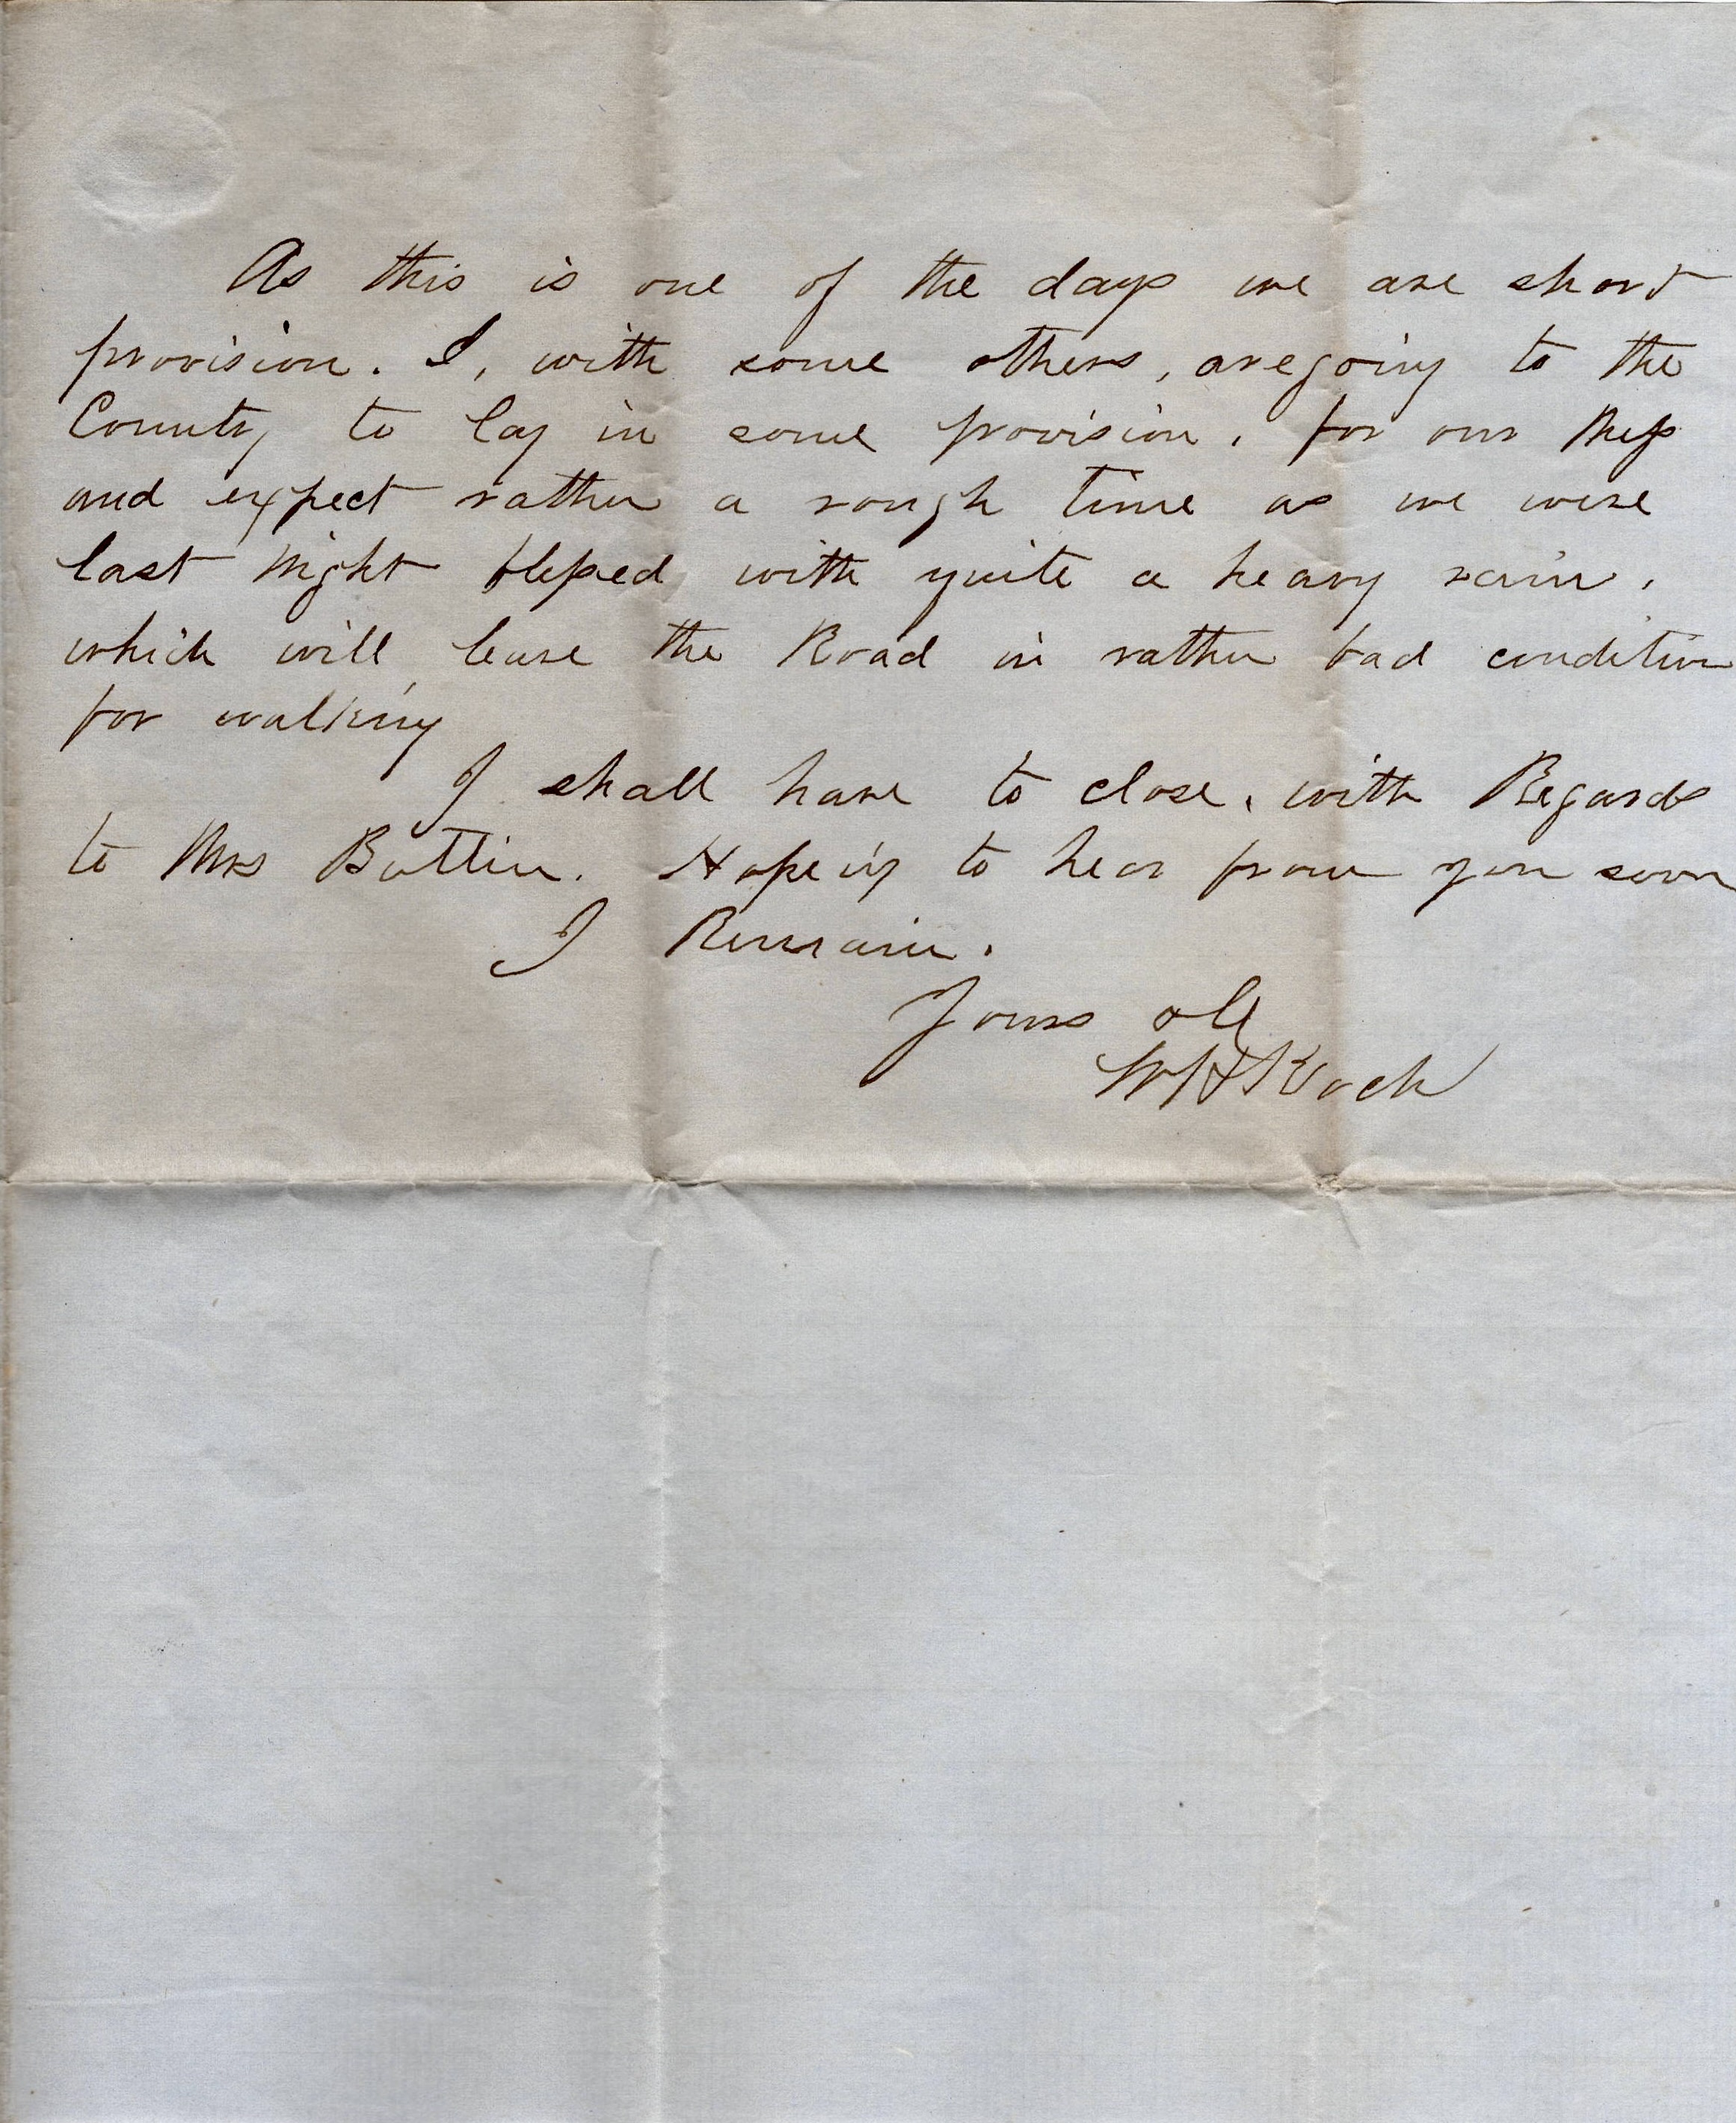 As this is one of the days we are short
provision. I, with some others, are going to the
County to lay in some provision, for our Mess
and expect rather a rough time as we were
last night blessed with quite a heavy rain,
which will leave the Road in rather bad condition
for walking
I shall have to close, with Regards
to Mrs Battin. Hopeing to hear from you soon
I Remain.
Yours &c
W H Koch